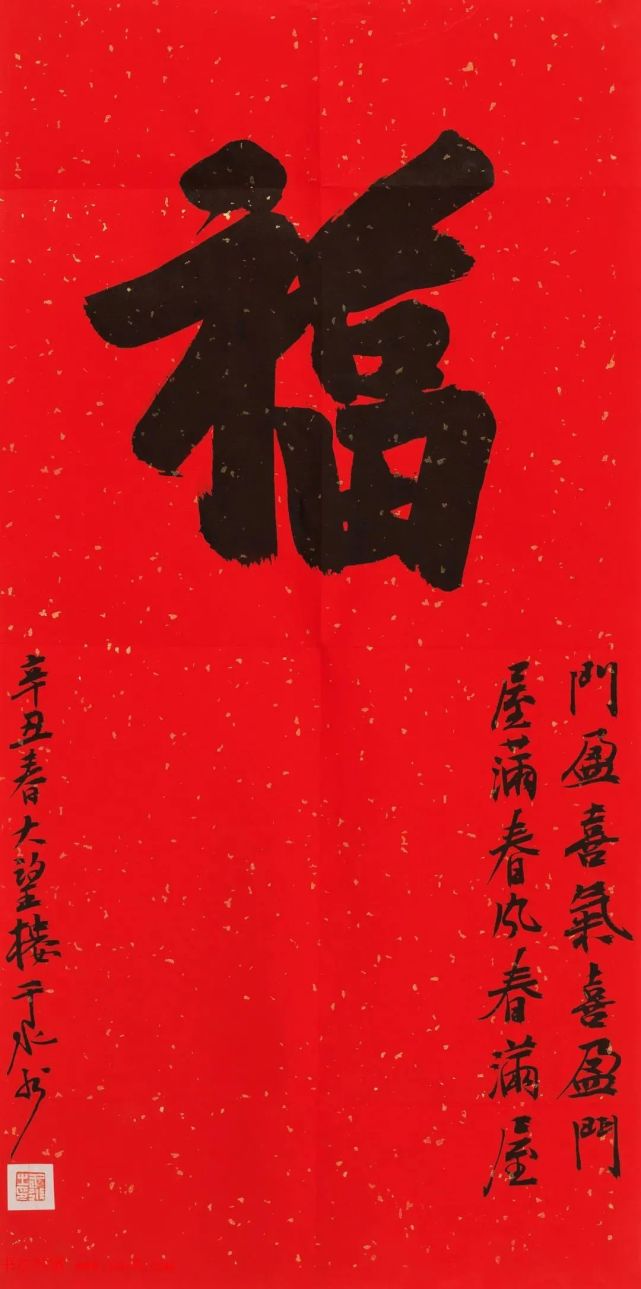 福
門盈喜氣喜盈門
屋滿春风春滿屋
辛丑春大望楼于水书